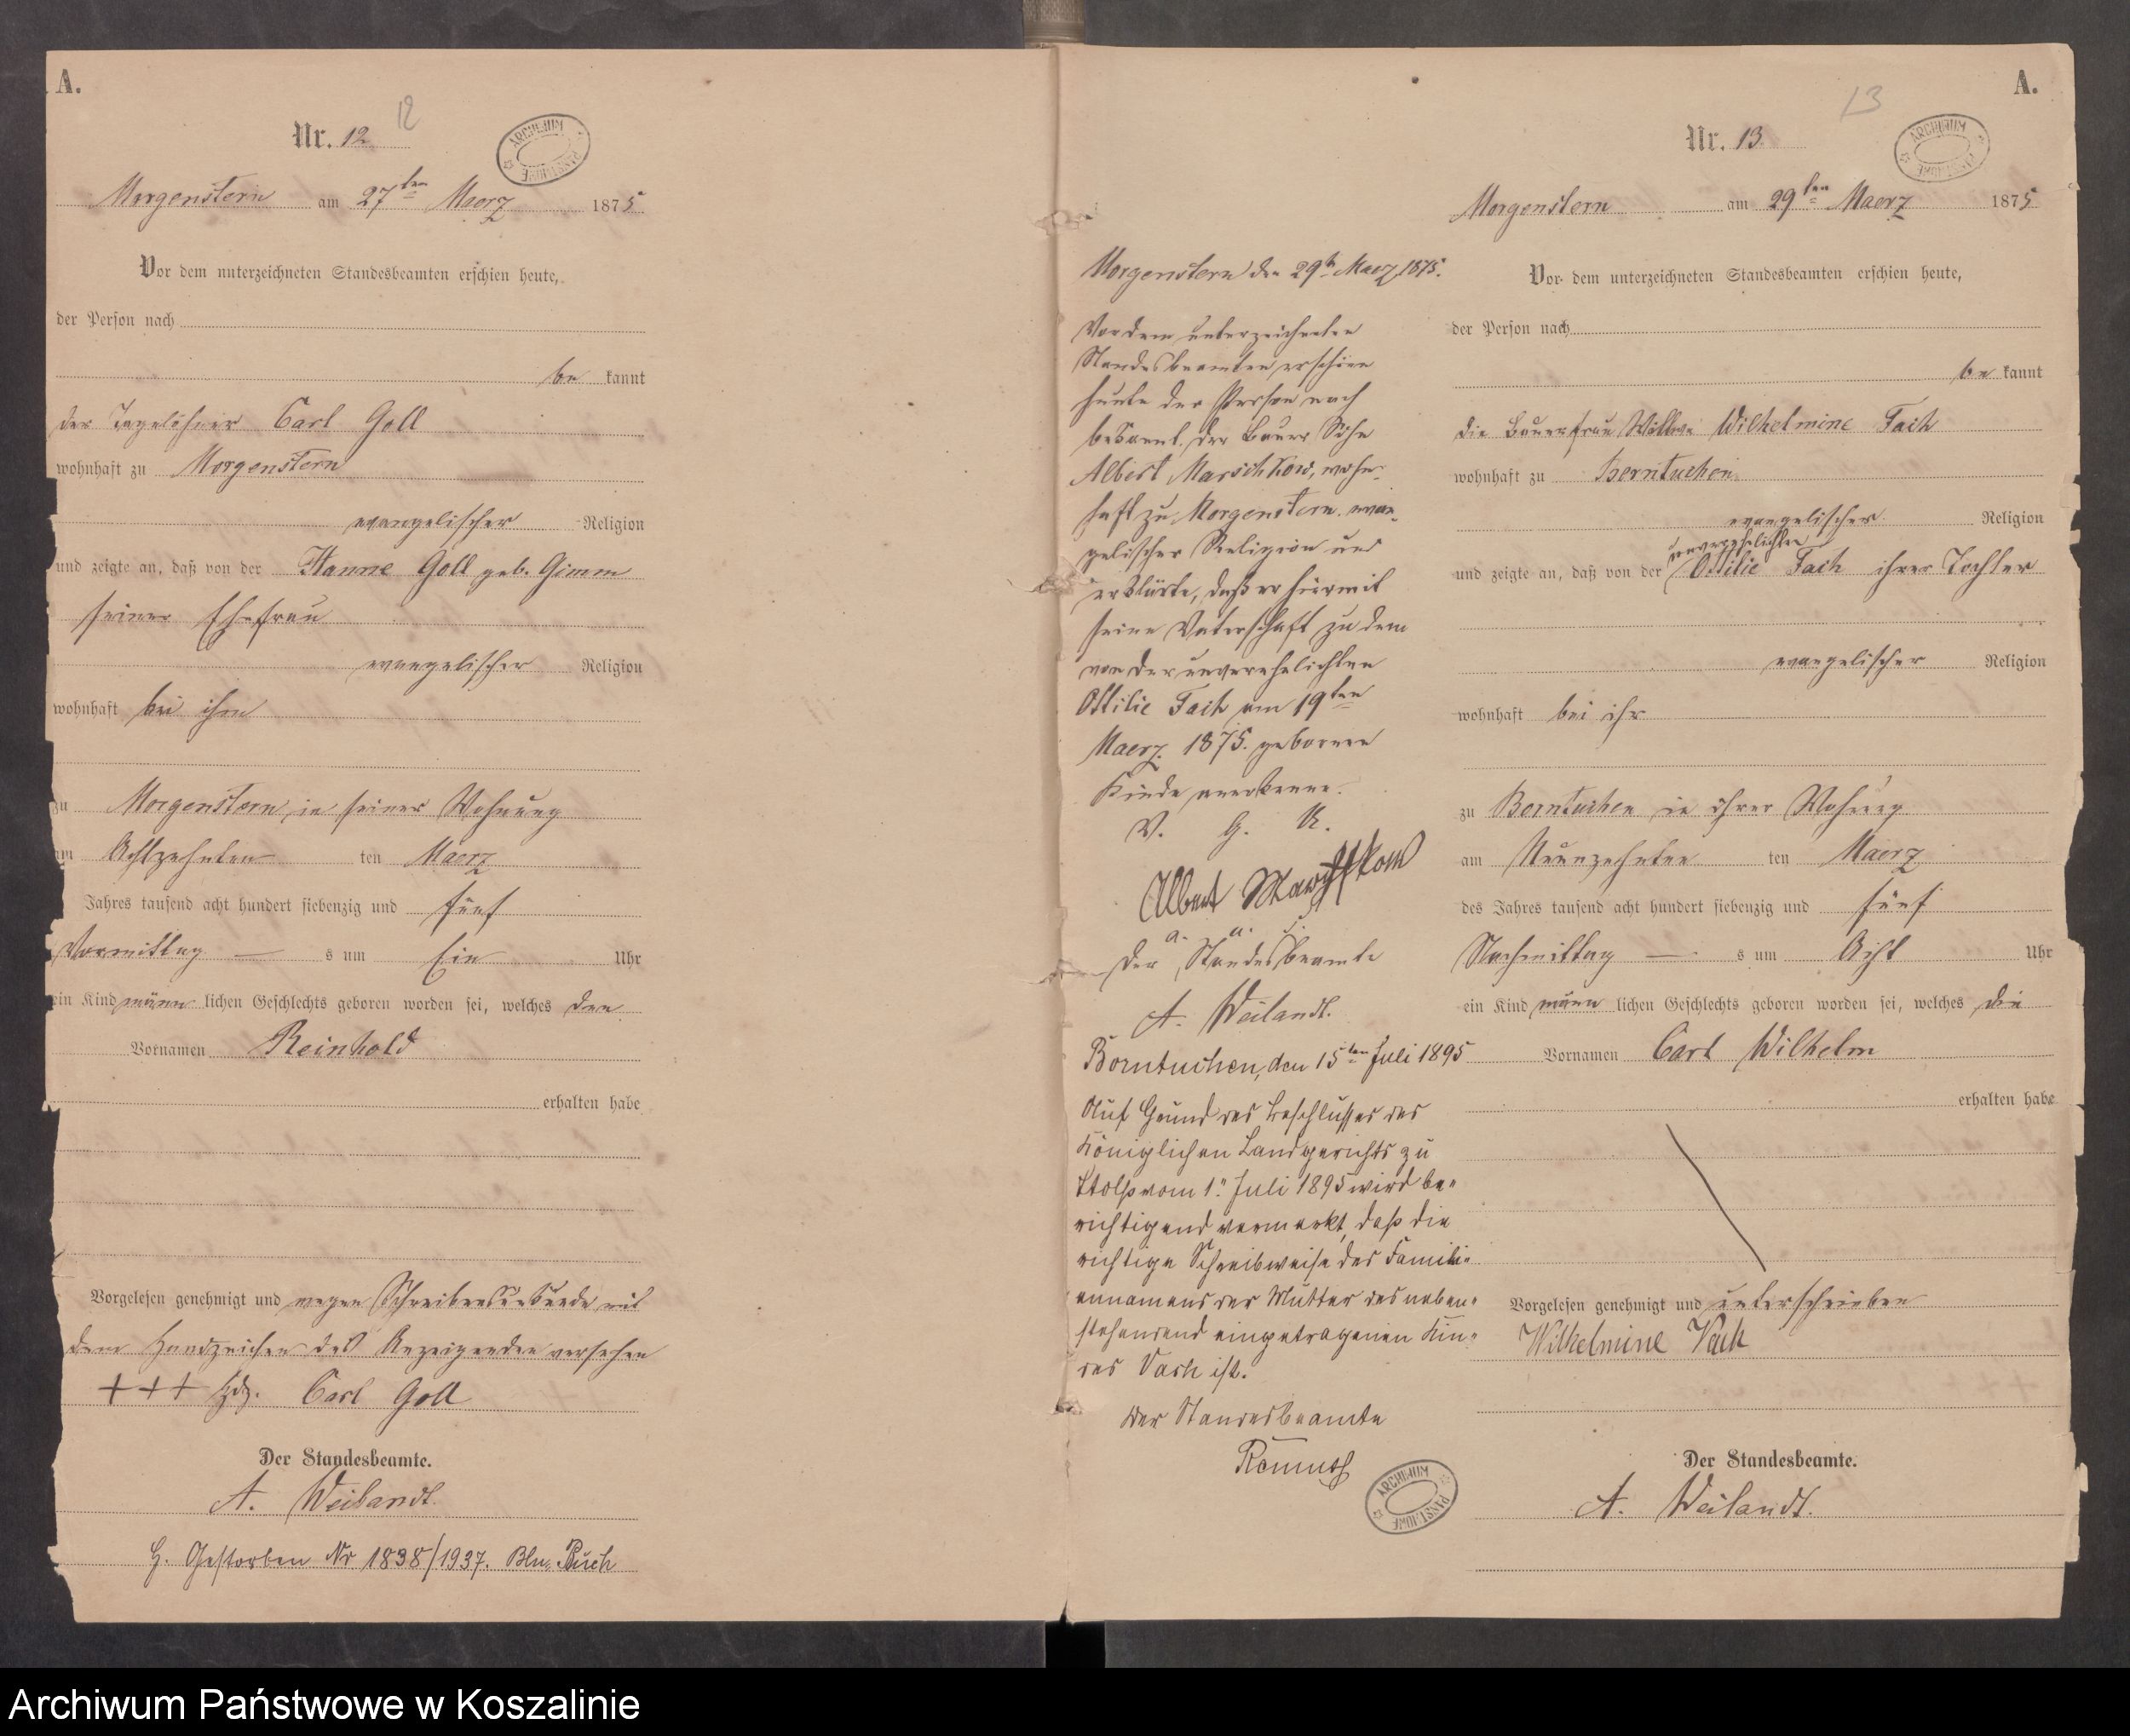 A.
Nr. 12.
12
ARCHIWUM PAŃSTWOWE
Morgenstern am 27ten Maerz 1875.
Vor dem unterzeichneten Standesbeamten erschien heute,
der Person nach
be kannt
der Tagelöhner Carl Goll
wohnhaft zu Morgenstern
evangelischer Religion
und zeigte an, daß von der Hanne Goll geb. Gimm
seiner Ehefrau
evangelischer Religion
wohnhaft bei ihm
zu Morgenstern, in seiner Wohnung
am Achtzehnten ten Maerz
Jahres tausend acht hundert siebenzig und fünf
Vormittag s um Ein Uhr
ein Kind männ lichen Geschlechts geboren worden sei, welches den
Vornamen Reinhold
erhalten habe
Vorgelesen genehmigt und wegen Schreibensunkunde mit
dem Handzeichen des Anzeigenden versehen
+++ Hdz. Carl Goll
Der Standesbeamte.
A. Weilandt.
Gestorben Nr 1838/1937. Bln. Buch
Morgenstern den 29t Maerz 1875.
Vor dem unterzeichneten
Standesbeamten erschien
heute der Person nach
bekannt, der Bauer Sohn
Albert Marschkow, wohn-
haft zu Morgenstern, evan-
gelischer Religion und
erklärte, daß er hiermit
seine Vaterschaft zu dem
von der unverehelichten
Ottilie Fach am 19ten
Maerz 1875. geborenen
Kinde anerkenne.
V. G. U.
Albert
a. u. s.
Der Standesbeamte
A. Weilandt.
Borntuchen, den 15ten Juli 1895
Auf Grund des Beschlusses des
Königlichen Landgerichts zu
Stolp vom 1. Juli 1895 wird be-
richtigend vermerkt, daß die
richtige Schreibweise des Famili-
ennamens der Mutter des neben-
stehenden eingetragenen Kin-
des Vach ist.
Der Standesbeamte
ARCHIWUM PAŃSTWOWE
A.
13
Nr. 13.
ARCHIWUM PAŃSTWOWE
Morgenstern am 29ten Maerz 1875
Vor dem unterzeichneten Standesbeamten erschien heute,
der Person nach
be kannt
die Bauerfrau Wittwe Wilhelmine Fach
wohnhaft zu Borntuchen
evangelischer Religion
unverehelichten
und zeigte an, daß von der Ottilie Fach ihrer Tochter
evangelischer Religion
wohnhaft bei ihr
zu Borntuchen in ihrer Wohnung
am Neunzehnten ten Maerz
des Jahres tausend acht hundert siebenzig und fünf
Nachmittag s um Acht Uhr
ein Kind männ lichen Geschlechts geboren worden sei, welches die
Vornamen Carl Wilhelm
erhalten habe
Vorgelesen genehmigt und unterschrieben
Wilhelmine Vach
Der Standesbeamte.
A. Weilandt.
Archiwum Państwowe w Koszalinie